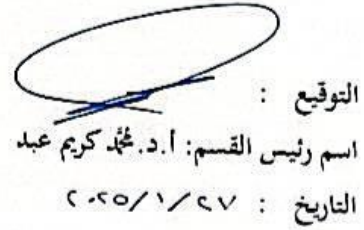 التوقيع :
اسم رئيس القسم: أ.د. محمد كريم عبد
التاريخ : ٢٠٢٥/١/٢٧